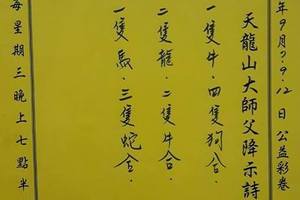 年9月?.9.12日公益彩卷
天龍山大師父降示詩
一隻牛.四隻狗合.
二隻龍.二隻牛合.
一隻馬.三隻蛇合.
每星期三晚上七點半